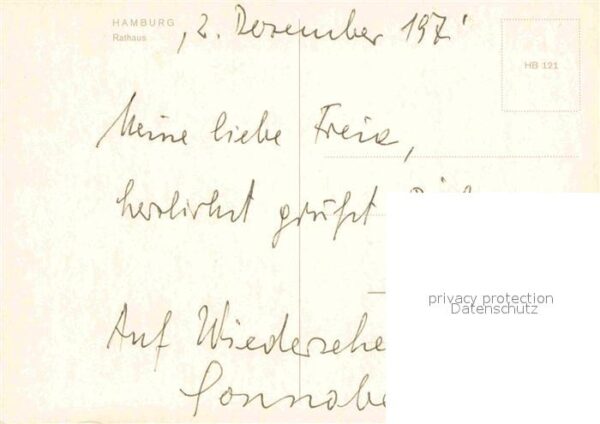 HAMBURG
Rathaus
HB 121
2. Dezember 197
Meine liebe Freia,
herzlichst grüßt
Auf Wiedersehe
Sonnabe
privacy protection
Datenschutz